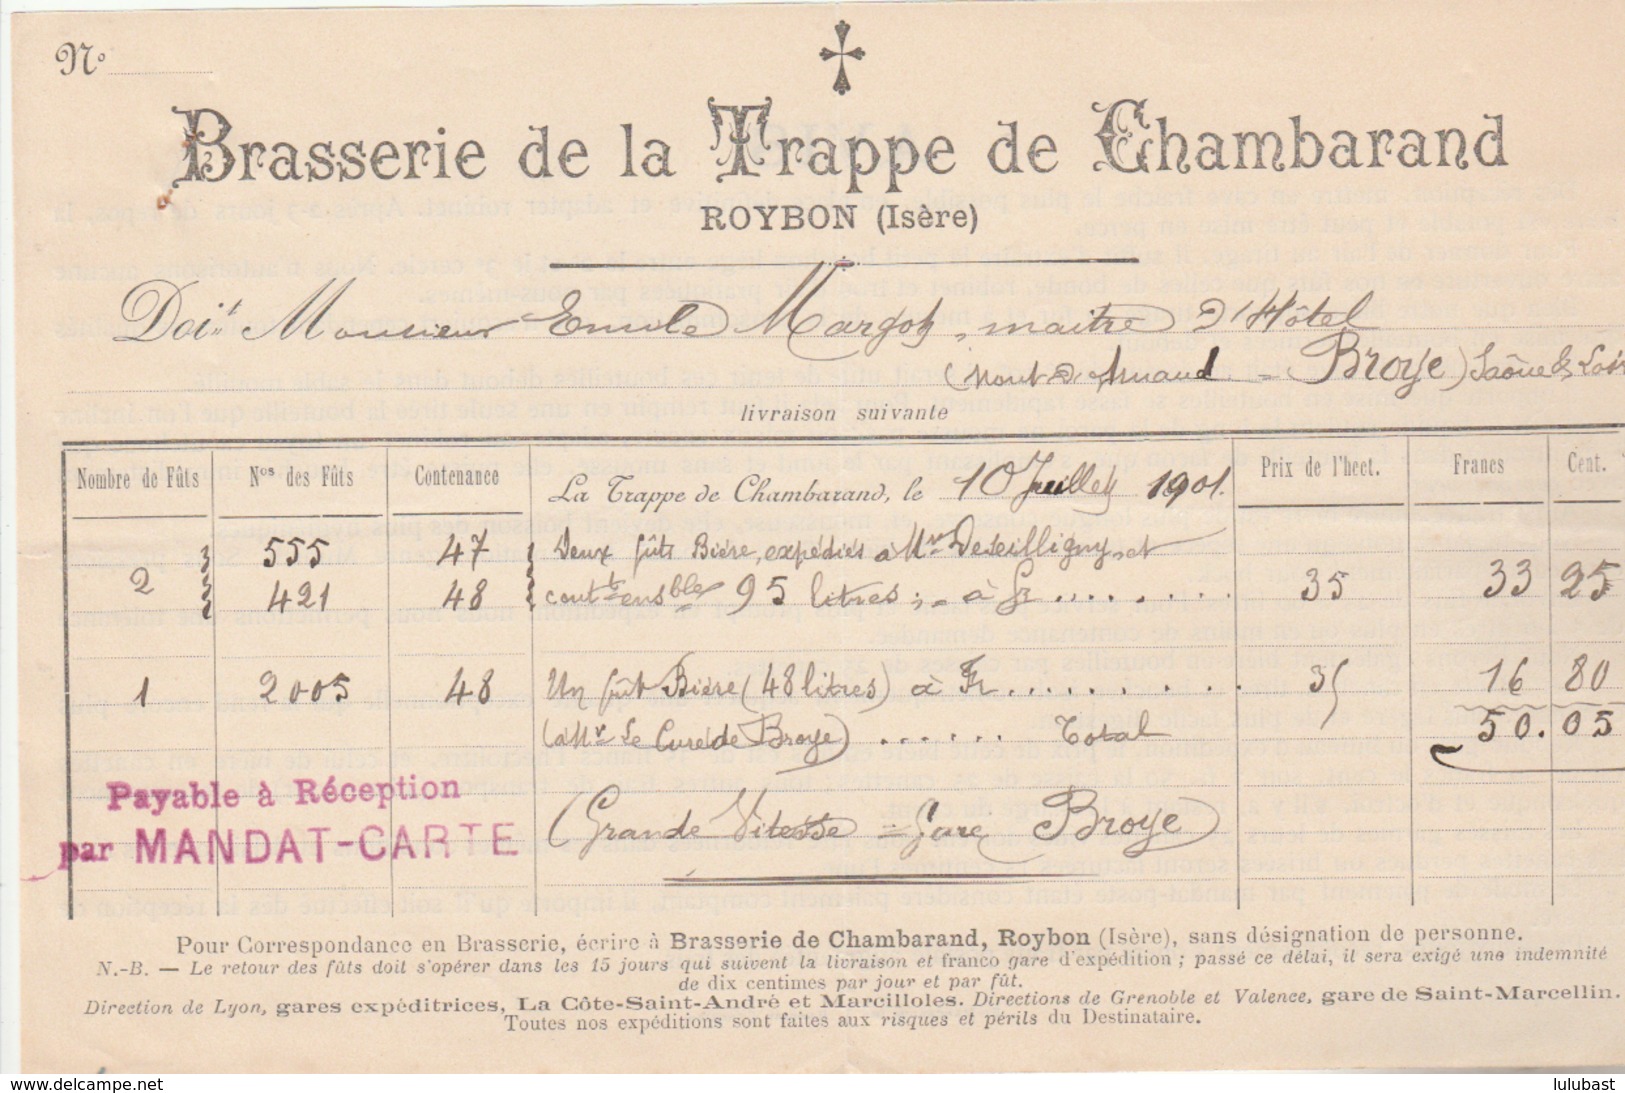 No
Brasserie de la Trappe de Chambarand
ROYBON (Isère)
Doit Monsieur Emile Margot, maître d'Hôtel
(Mont d'Arnaud - Broye) Saône & Loir
livraison suivante
Nombre de Fûts Nos des Fûts Contenance La Trappe de Chambarand, le 10 Juillet 1901. Prix de l'hect. Francs Cent.
2 555 47 Deux fûts Bière, expédiés à Mr Deseilligny, et
421 48 contt ensble 95 litres; - à fr ........ 35 33 25
1 2005 48 Un fût Bière (48 litres) à Fr ......... 35 16 80
(à Mr Le Curé de Broye) ...... Total 50.05
Payable à Réception
par MANDAT-CARTE
(Grande Vitesse = Gare Broye)
Pour Correspondance en Brasserie, écrire à Brasserie de Chambarand, Roybon (Isère), sans désignation de personne.
N.-B. — Le retour des fûts doit s'opérer dans les 15 jours qui suivent la livraison et franco gare d'expédition ; passé ce délai, il sera exigé une indemnité
de dix centimes par jour et par fût.
Direction de Lyon, gares expéditrices, La Côte-Saint-André et Marcilloles. Directions de Grenoble et Valence, gare de Saint-Marcellin.
Toutes nos expéditions sont faites aux risques et périls du Destinataire.
www.delcampe.net lulubast